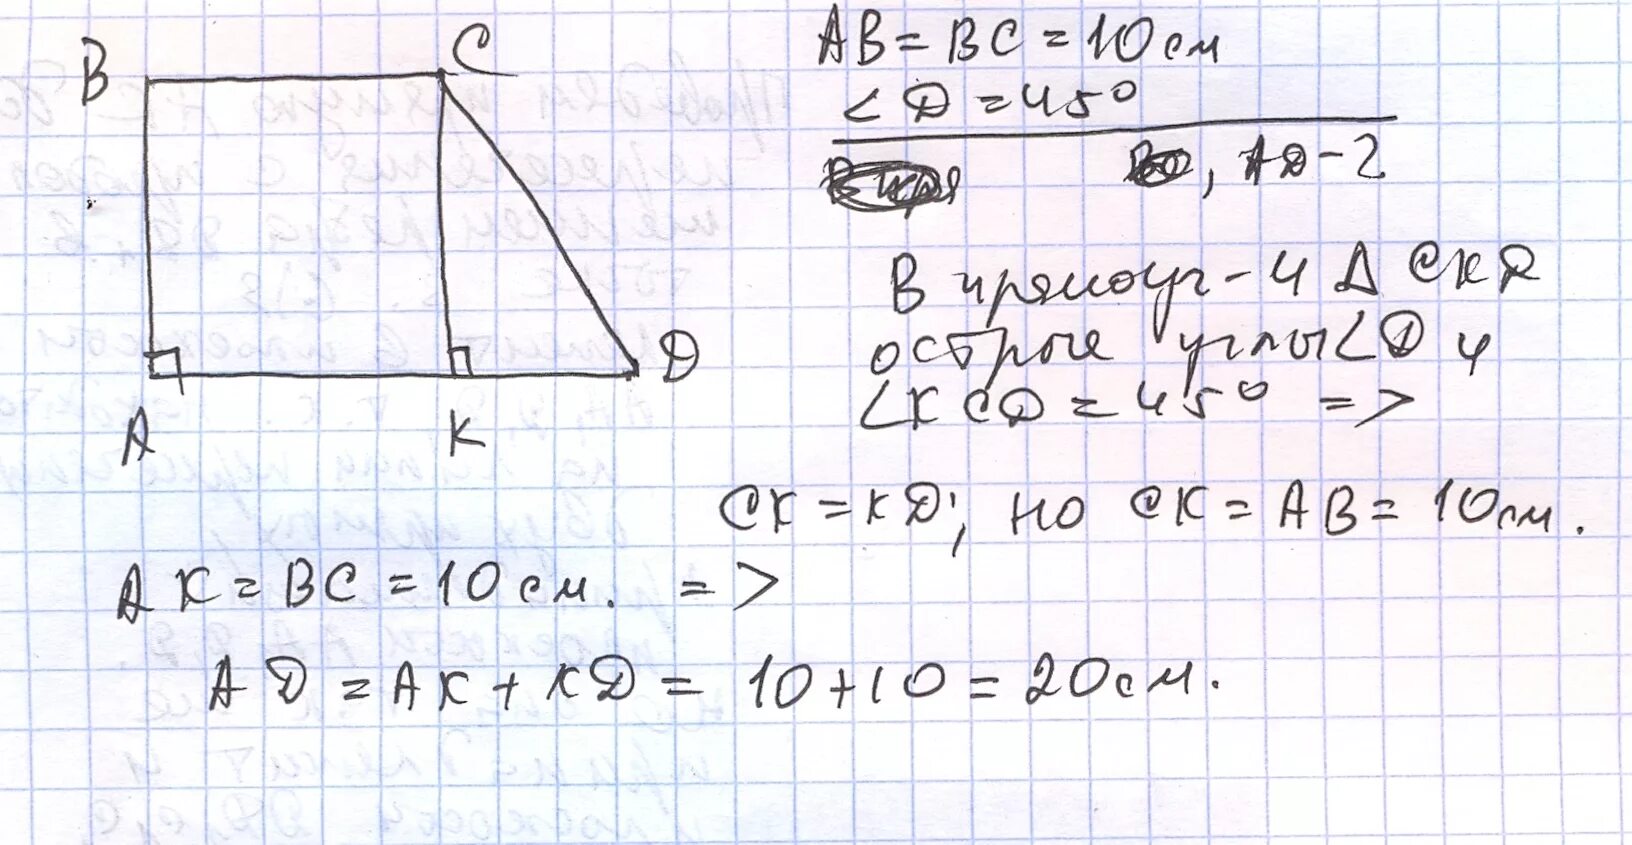 B
C
A
K
D
AB = BC = 10 см
∠D = 45°
, AD - ?
В прямоуг-м Δ CKD
острые углы ∠D и
∠KCD = 45° =>
CK = KD; но CK = AB = 10 см.
AK = BC = 10 см. =>
AD = AK + KD = 10 + 10 = 20 см.